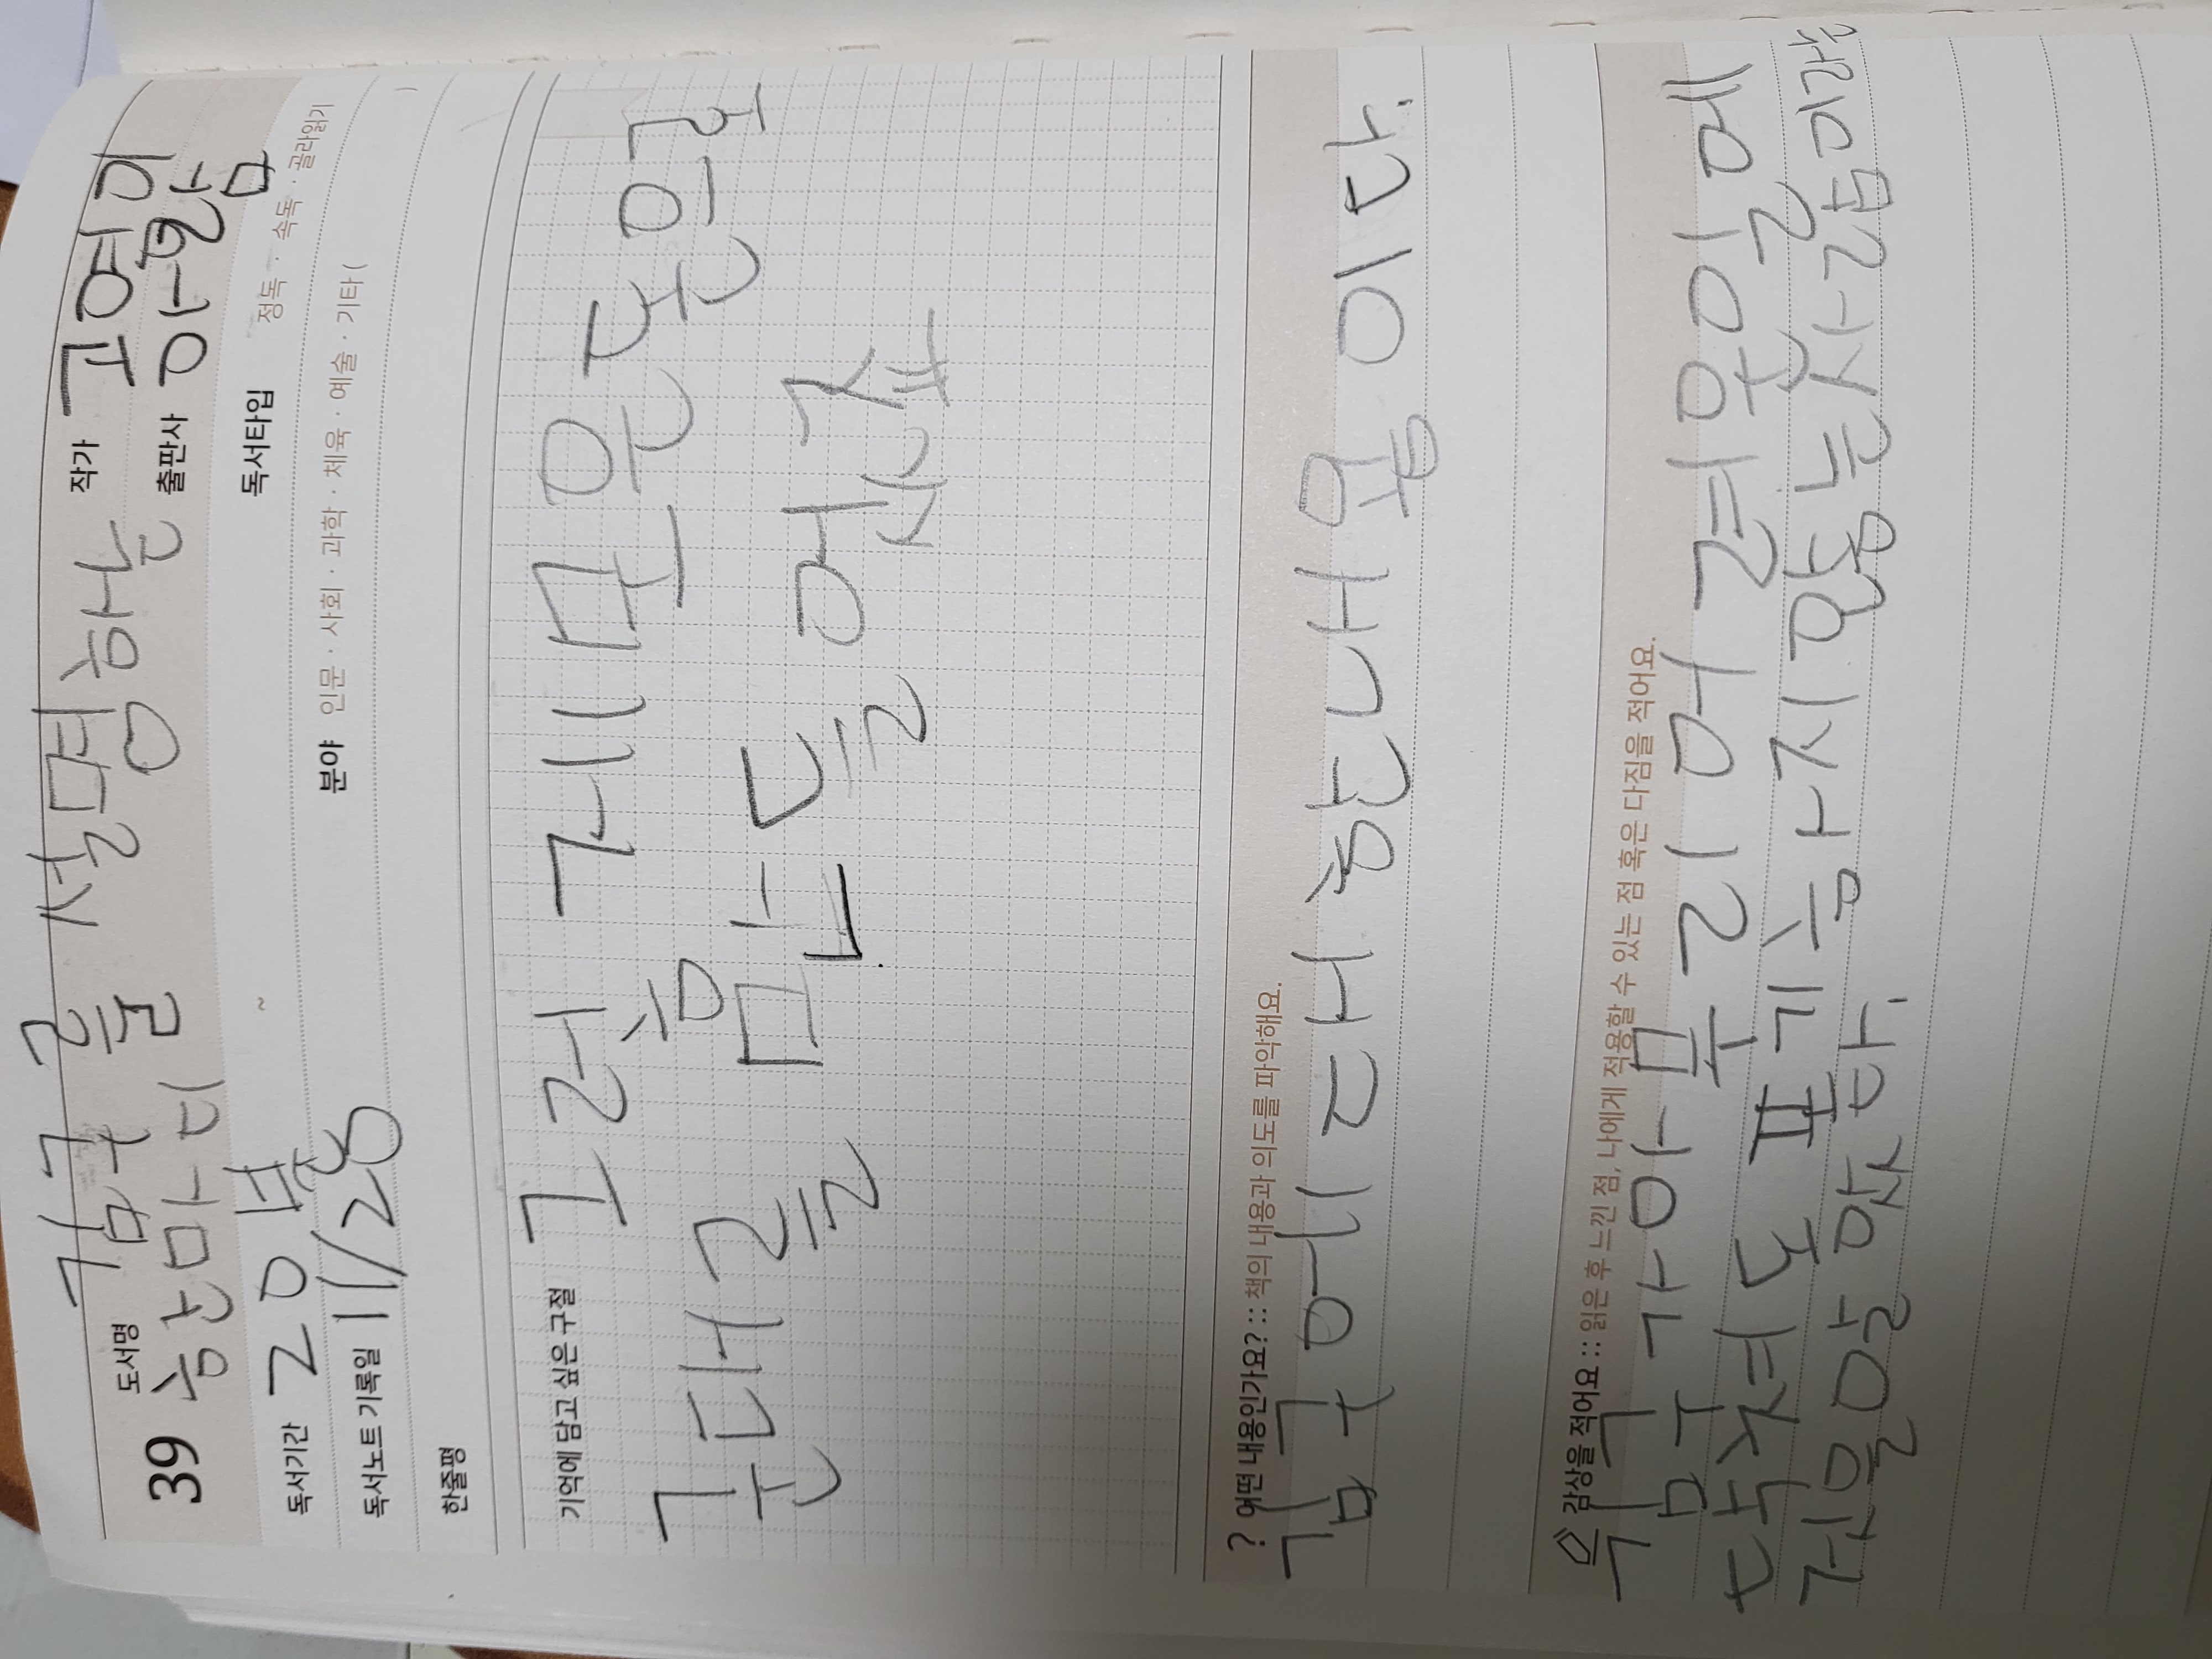 39 도서명 김구를 설명하는 작가 고영이
한마디 출판사 아람
독서기간 20분 ~ 독서타입 정독 · 속독 · 골라읽기
독서노트 기록일 11/28 분야 인문 · 사회 · 과학 · 체육 · 예술 · 기타 ( )
한줄평
기억에 담고 싶은 구절 그럼 게 모은 돈으로
군대를 만들었죠
? 어떤 내용인가요? :: 책의 내용과 의도를 파악해요.
김구에 대한 내용 이다.
감상을 적어요 :: 읽은 후 느낀 점, 나에게 적용할 수 있는 점 혹은 다짐을 적어요.
김구가 아무리 어려운 일에
닥쳐도 포기하지 않는 사람이라는
것을 알았다.